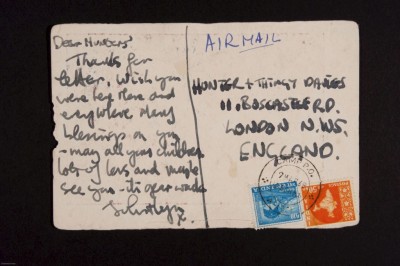 Dear Hunters
Thanks for
letter, Wish you
were here there and
everywhere Many
blessings on you
- may all your children
lots of less and maybe
see you
AIRMAIL
HUNTER + THINGY DAVIES
11. BOSCASTLE RD.
LONDON N.W5.
ENGLAND.
INDIA